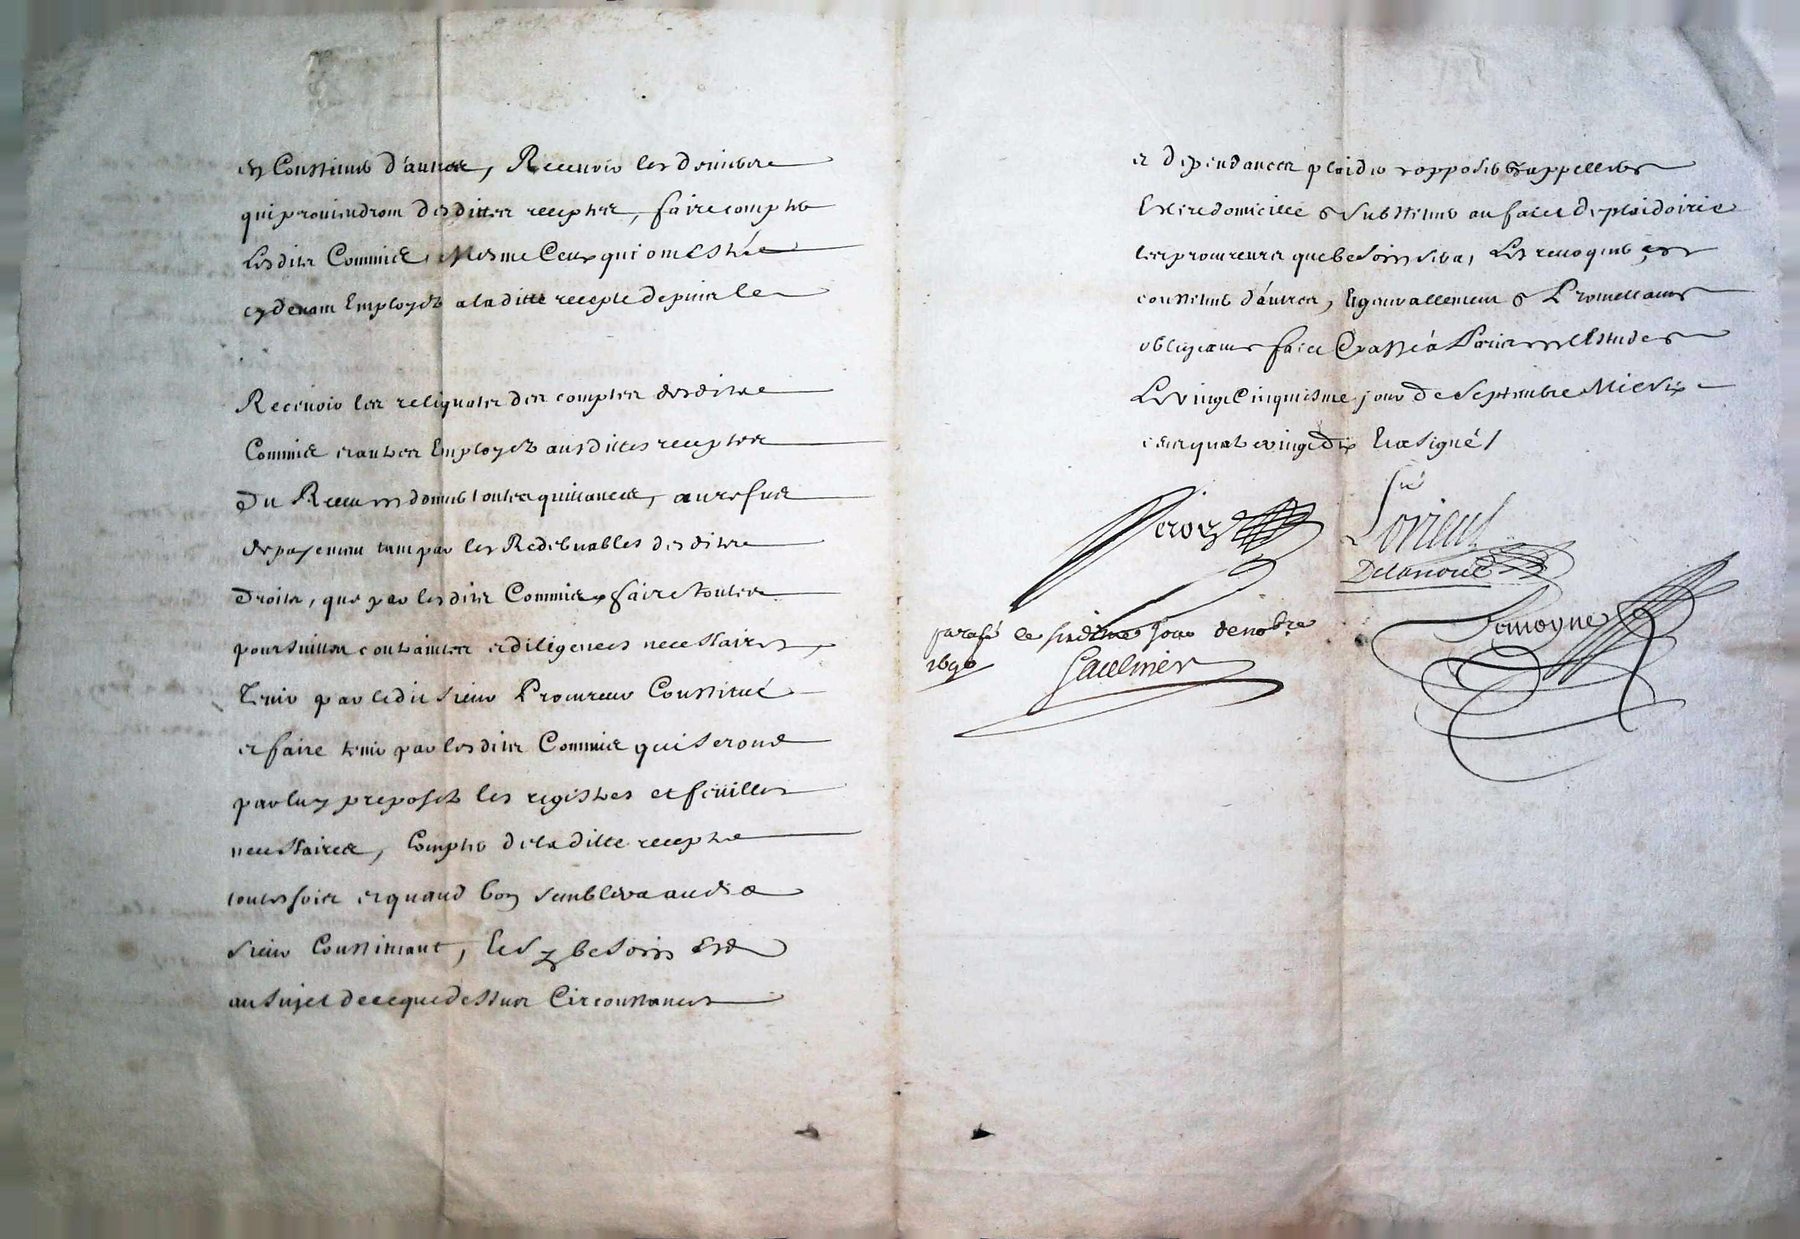 en Constituer d'autres, Recevoir les deniers
qui proviendront desdittes receptes, faire compter
Lesdits Commis, Mesme Ceux qui ont Esté
cydevant Employez a la ditte recepte depuis le
Recevoir les reliquats des comptes desdits
Commis et autres Employez ausdittes receptes
Du Receu en donner toutes quittances, au refus
de payement tant par les Redevables desdits
Droits, que par lesdits Commis faire toutes
poursuittes contraintes et diligences necessaires,
Tenir par ledit sieur Procureur Constitué
et faire tenir par lesdits Commis qui seront
par luy preposez les registres et feuilles
necessaires, Compter de la ditte recepte
toutesfois et quand bon semblera audit
sieur Constituant, besoin
au sujet de ce que dessus Circonstances
et dependances plaider opposer appeller
Elire domicille substituer au fait de plaidoirie
les procureurs que besoin sera, Les revoquer, en
constituer d'autres, Et generallement Promettant
obligeant fait Et passé a Paris es Estudes
Le vingt Cinquiesme jour de Septembre Mil Six
cent quatre vingt dix Et a Signé /
Lorieul
Delanoue
Lemoyne
parafé ce jour de no.bre
1690
Gaulmier